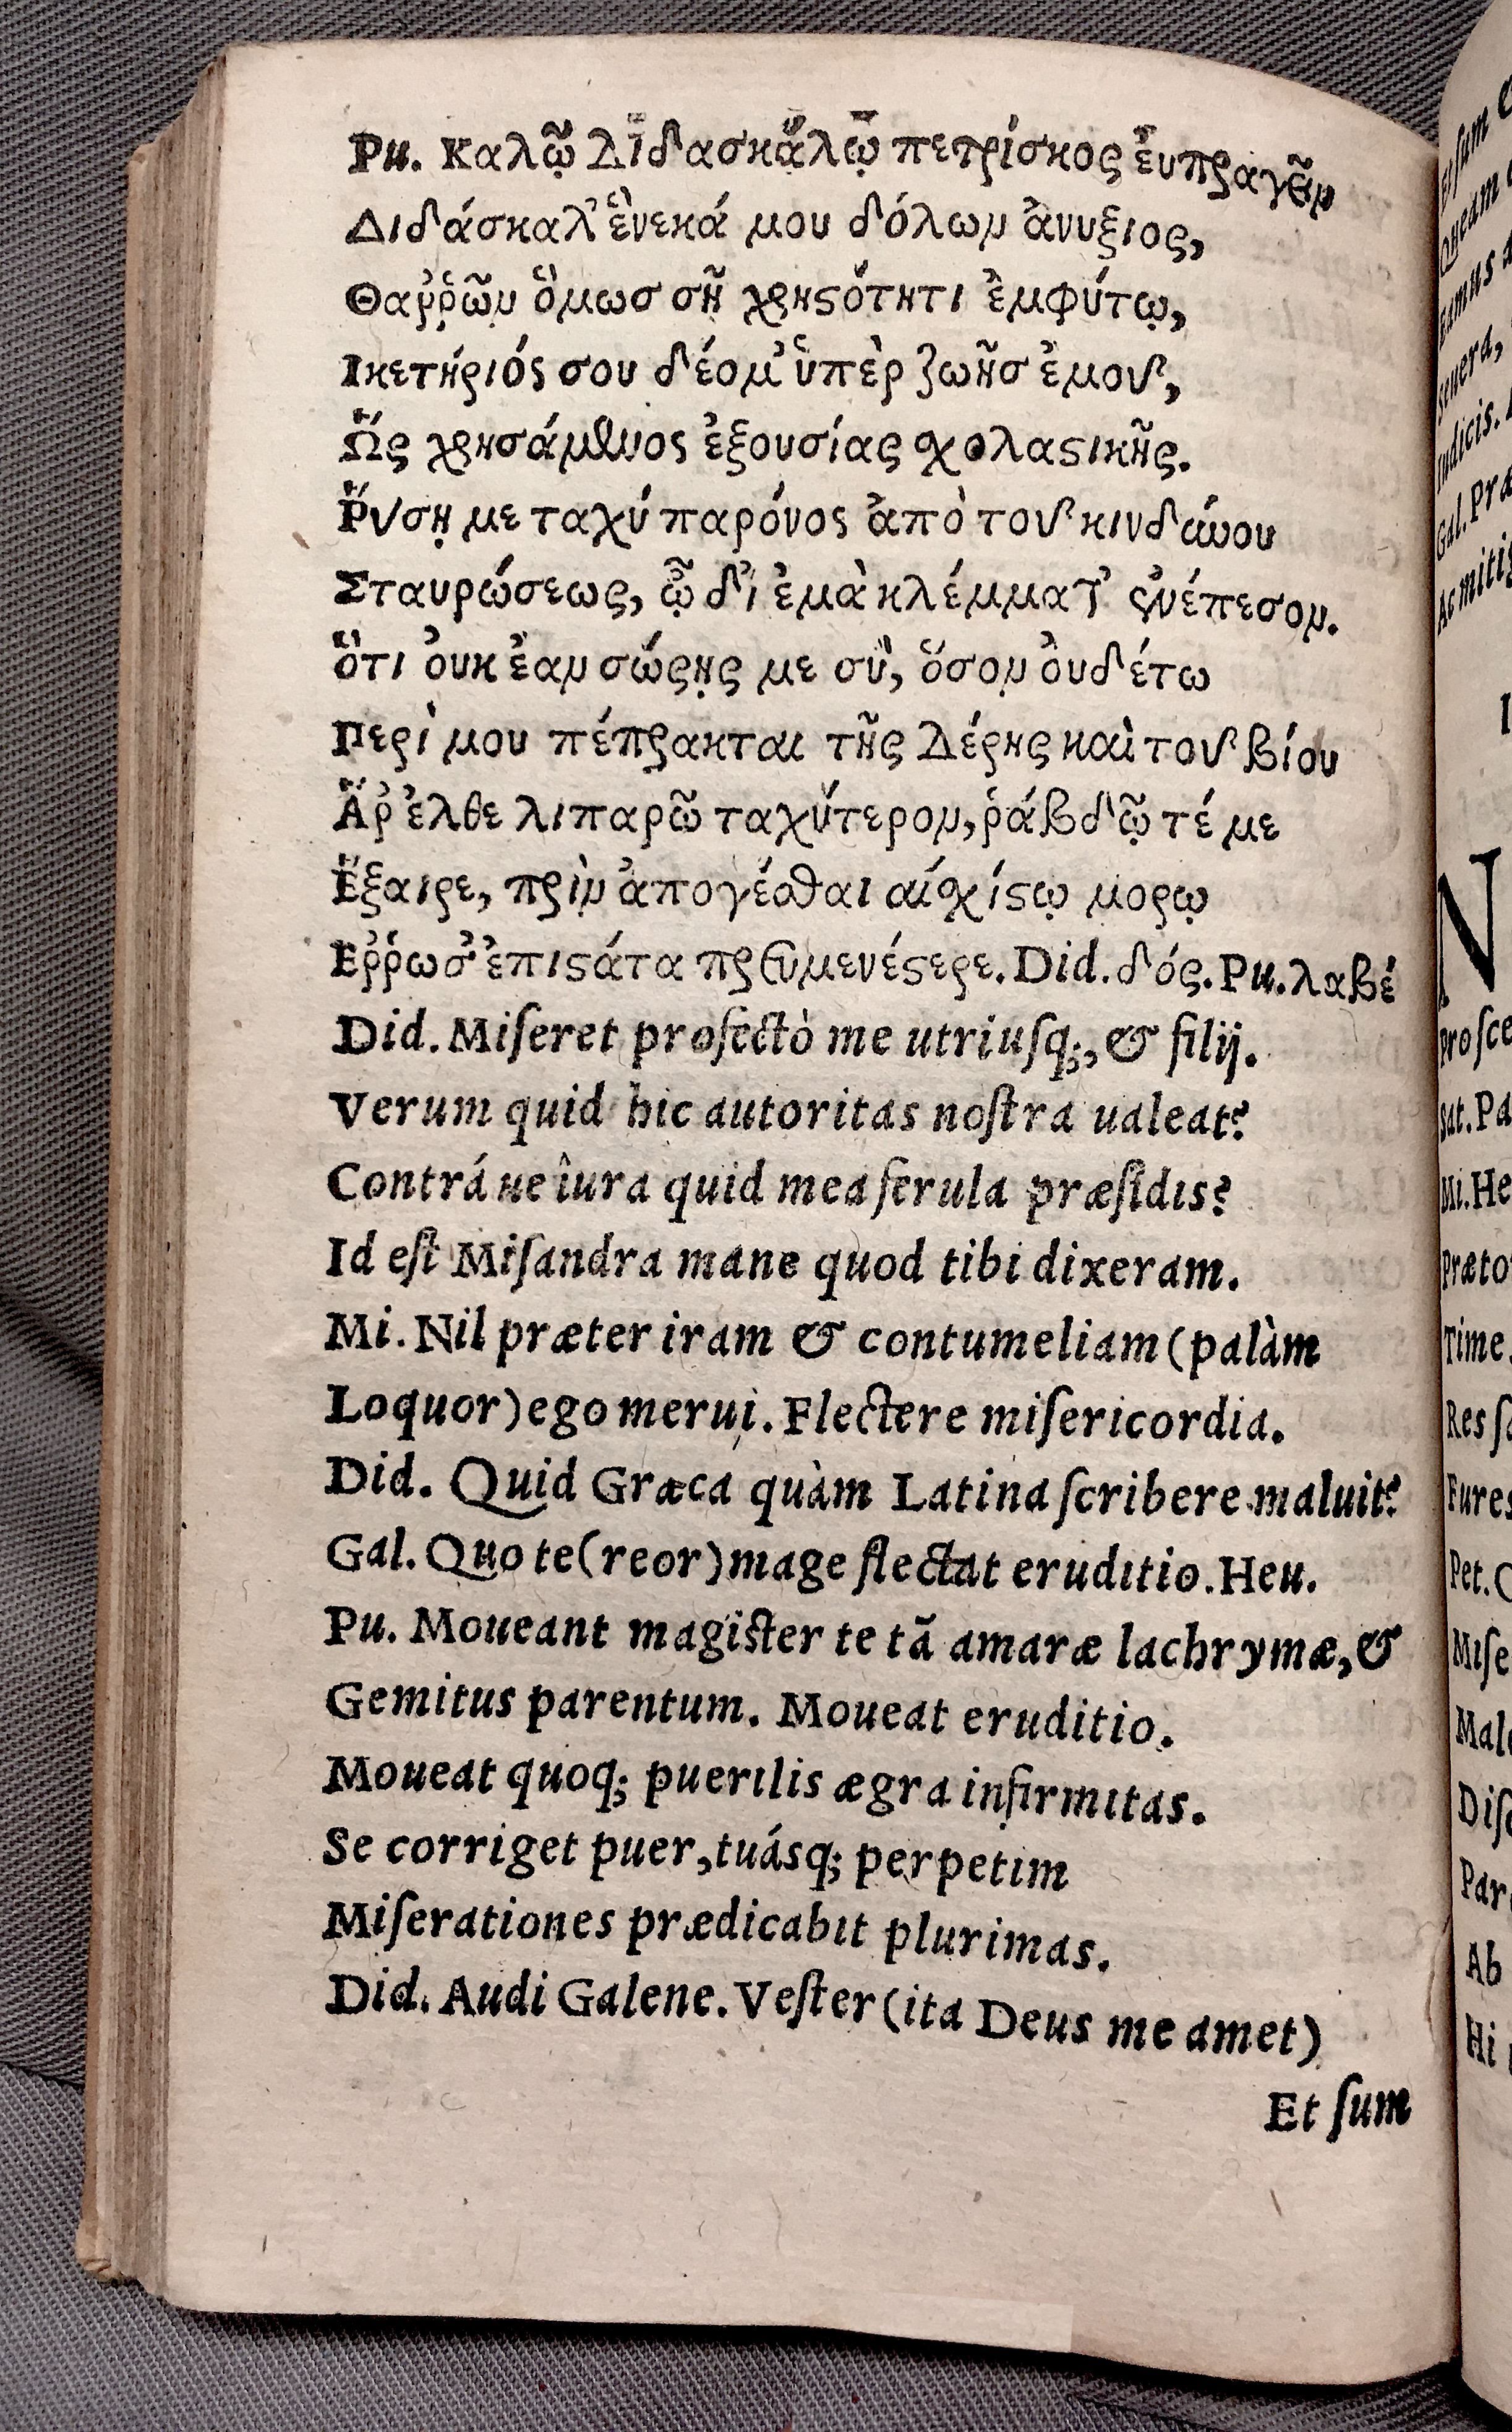 Pu. Καλῷ Διδασκάλῳ πετρίσκος ἐυπραγεῖν
Διδάσκαλ' ἕνεκά μου δόλων ἀνυξιος,
Θαῤῥῶν ὅμωσ σῆ χρηϛότητι ἐμφύτῳ,
Ικετήριός σου δέομ' ὑπὲρ ζωῆσ ἐμοῦ,
Ὥς χρησάμενος ἐξουσίας σχολαϛικῆς.
Ῥῦσῃ με ταχύ παρόνος ἀπὸ τοῦ κινδύνου
Σταυρώσεως, ᾧ δ'ι ἐμὰ κλέμματ' συνέπεσον.
ὅτι ὀυκ ἐαν σώρῃς με σὺ, ὅσον ὀυδέτω
Περὶ μου πέπρακται τῆς Δέρης καὶ τοῦ βίου
Ἄρ ἐλθε λιπαρῶ ταχύτερον, ῥάβδῳ τέ με
Ἔξαιρε, πρὶν ἀπογέσθαι αἰσχίϛῳ μορῳ
Εῤῥωσ' ἐπιϛάτα πρευμενέϛερε. Did. δός. Pu. λαβέ
Did. Miſeret profectò me utriuſq;, & filij.
Verum quid hic autoritas noſtra ualeat?
Contráue iura quid mea ferula præſidis?
Id eſt Miſandra mane quod tibi dixeram.
Mi. Nil præter iram & contumeliam (palàm
Loquor) ego merui. Flectere miſericordia.
Did. Quid Græca quàm Latina ſcribere maluit?
Gal. Quo te (reor) mage flectat eruditio. Heu.
Pu. Moueant magiſter te tã amaræ lachrymæ, &
Gemitus parentum. Moueat eruditio.
Moueat quoq; puerilis ægra infirmitas.
Se corriget puer, tuásq; perpetim
Miſerationes prædicabit plurimas.
Did. Audi Galene. Veſter (ita Deus me amet)
Et ſum